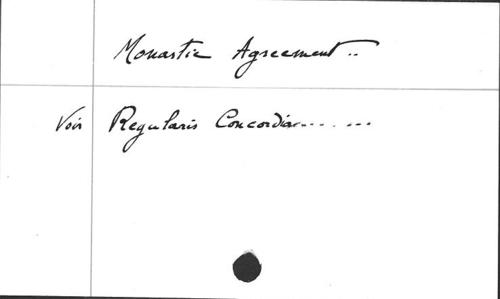 Monastic Agreement..
Voir Regularis Concordia.......